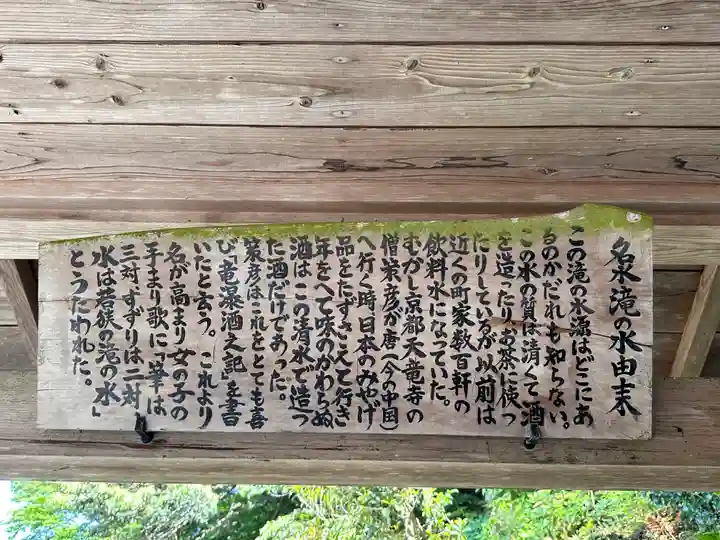 名水滝の水由来
この滝の水源はどこにあ
るのかだれも知らない。
この水の質は清くて酒
を造ったり、お茶に使っ
たりしているが、以前は
近くの町家数百軒の
飲料水になっていた。
むかし京都天竜寺の
僧策彦が唐(今の中国)
へ行く時、日本のみやげ
品をたずさえて行き
年をへて味のかわらぬ
酒はこの清水で造っ
た酒だけであった。
策彦はこれをとても喜
び「竜瀑酒之記」を書
いたと言う。これより
名が高まり女の子の
手まり歌に「筆は
三対、すずりは二対
水は岩族の滝の水」
とうたわれた。